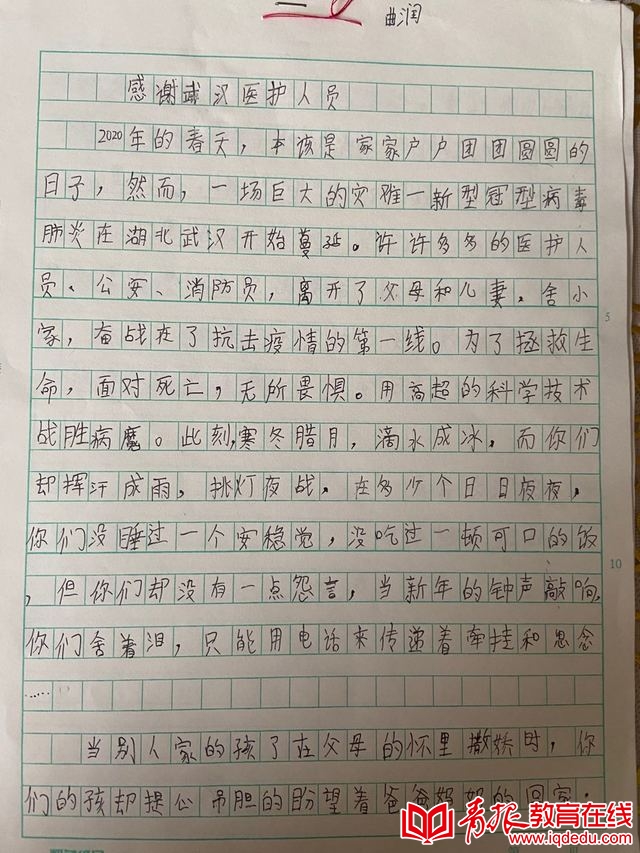 曲润
感谢武汉医护人员
2020年的春天，本该是家家户户团团圆圆的
日子，然而，一场巨大的灾难一新型冠型病毒
肺炎在湖北武汉开始蔓延。许许多多的医护人
员、公安、消防员，离开了父母和儿妻，舍小
家，奋战在了抗击疫情的第一线。为了拯救生
命，面对死亡，无所畏惧。用高超的科学技术
战胜病魔。此刻，寒冬腊月，滴水成冰，而你们
却挥汗成雨，挑灯夜战，在多少个日日夜夜，
你们没睡过一个安稳觉，没吃过一顿可口的饭
，但你们却没有一点怨言，当新年的钟声敲响，
你们含着泪，只能用电话来传递着牵挂和思念
……
当别人家的孩子在父母的怀里撒娇时，你
们的孩却提心吊胆的盼望着爸爸妈妈的回家．
青报教育在线
www.iqdedu.com
5
10